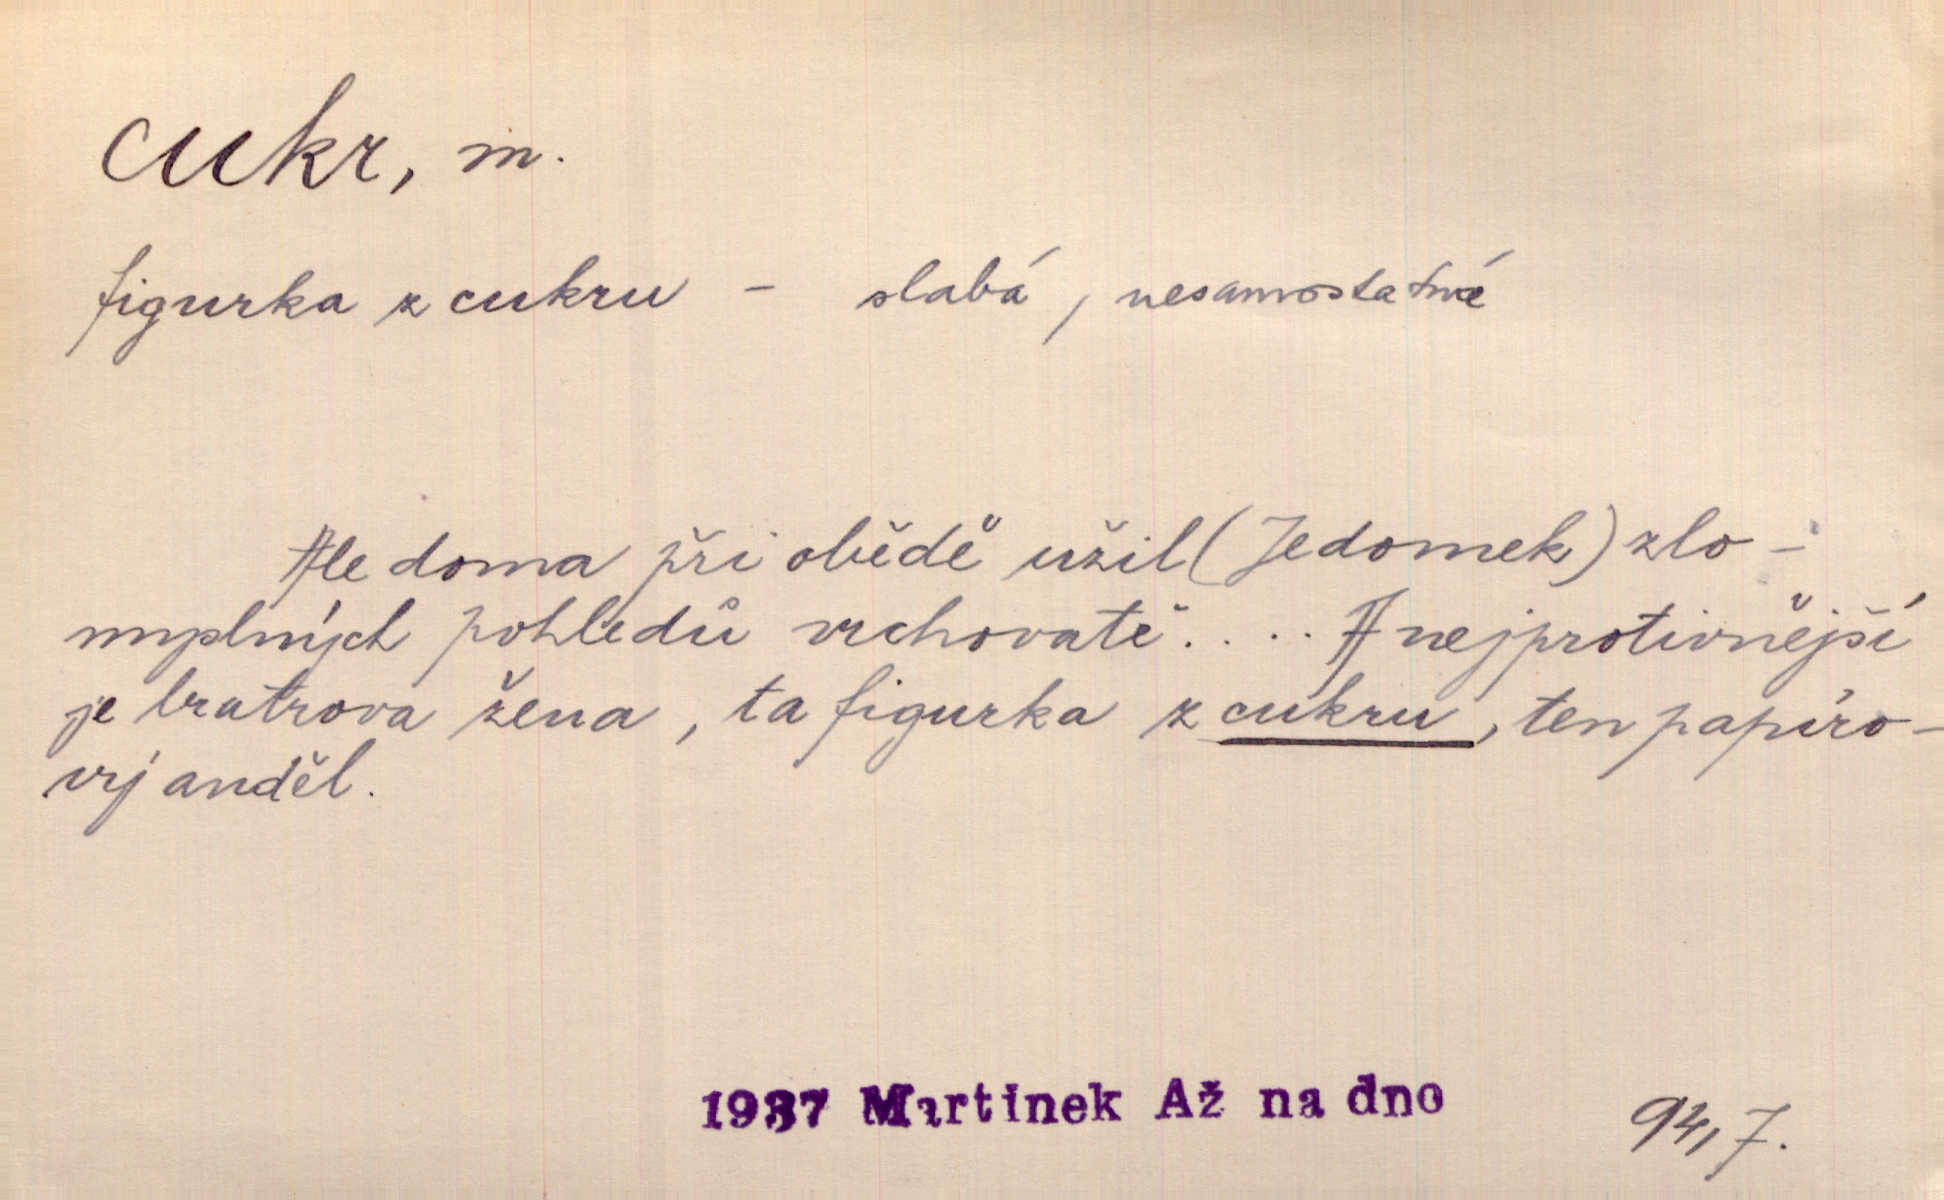 cukr, m.
figurka z cukru - slabá, nesamostatná
Ale doma při obědě užil (Jedomek) zlo-
myslných pohledů vrchovatě. ... A nejprotivnější
je bratrova žena, ta figurka z cukru, ten papíro-
vý anděl.
1937 Martínek Až na dno
94, 7.